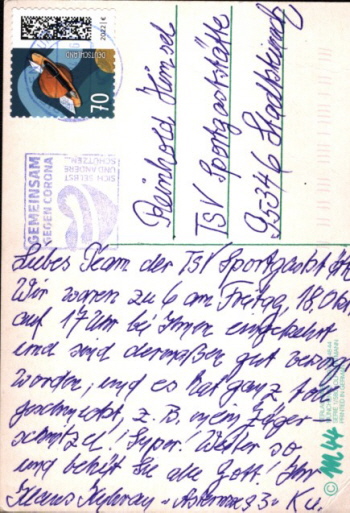 DEUTSCHLAND
2022
70
GEMEINSAM
GEGEN CORONA
SICH SELBST
UND ANDERE
SCHÜTZEN
Reinhold
TSV Sportgaststätte
95346 Stadtsteinach
Liebes Team der TSV Sportgastst
Wir waren zu 6 am Freitag, 18.Okt.
auf 17 Uhr bei Ihnen eingekehrt
und sind dermaßen gut
worden, und es hat ganz toll
geschmeckt, z. B. mein Jäger-
schnitzel! Super! Weiter so
und behüt Sie alle Gott! Ihr
Klaus
PRINTED IN GERMANY
© M44